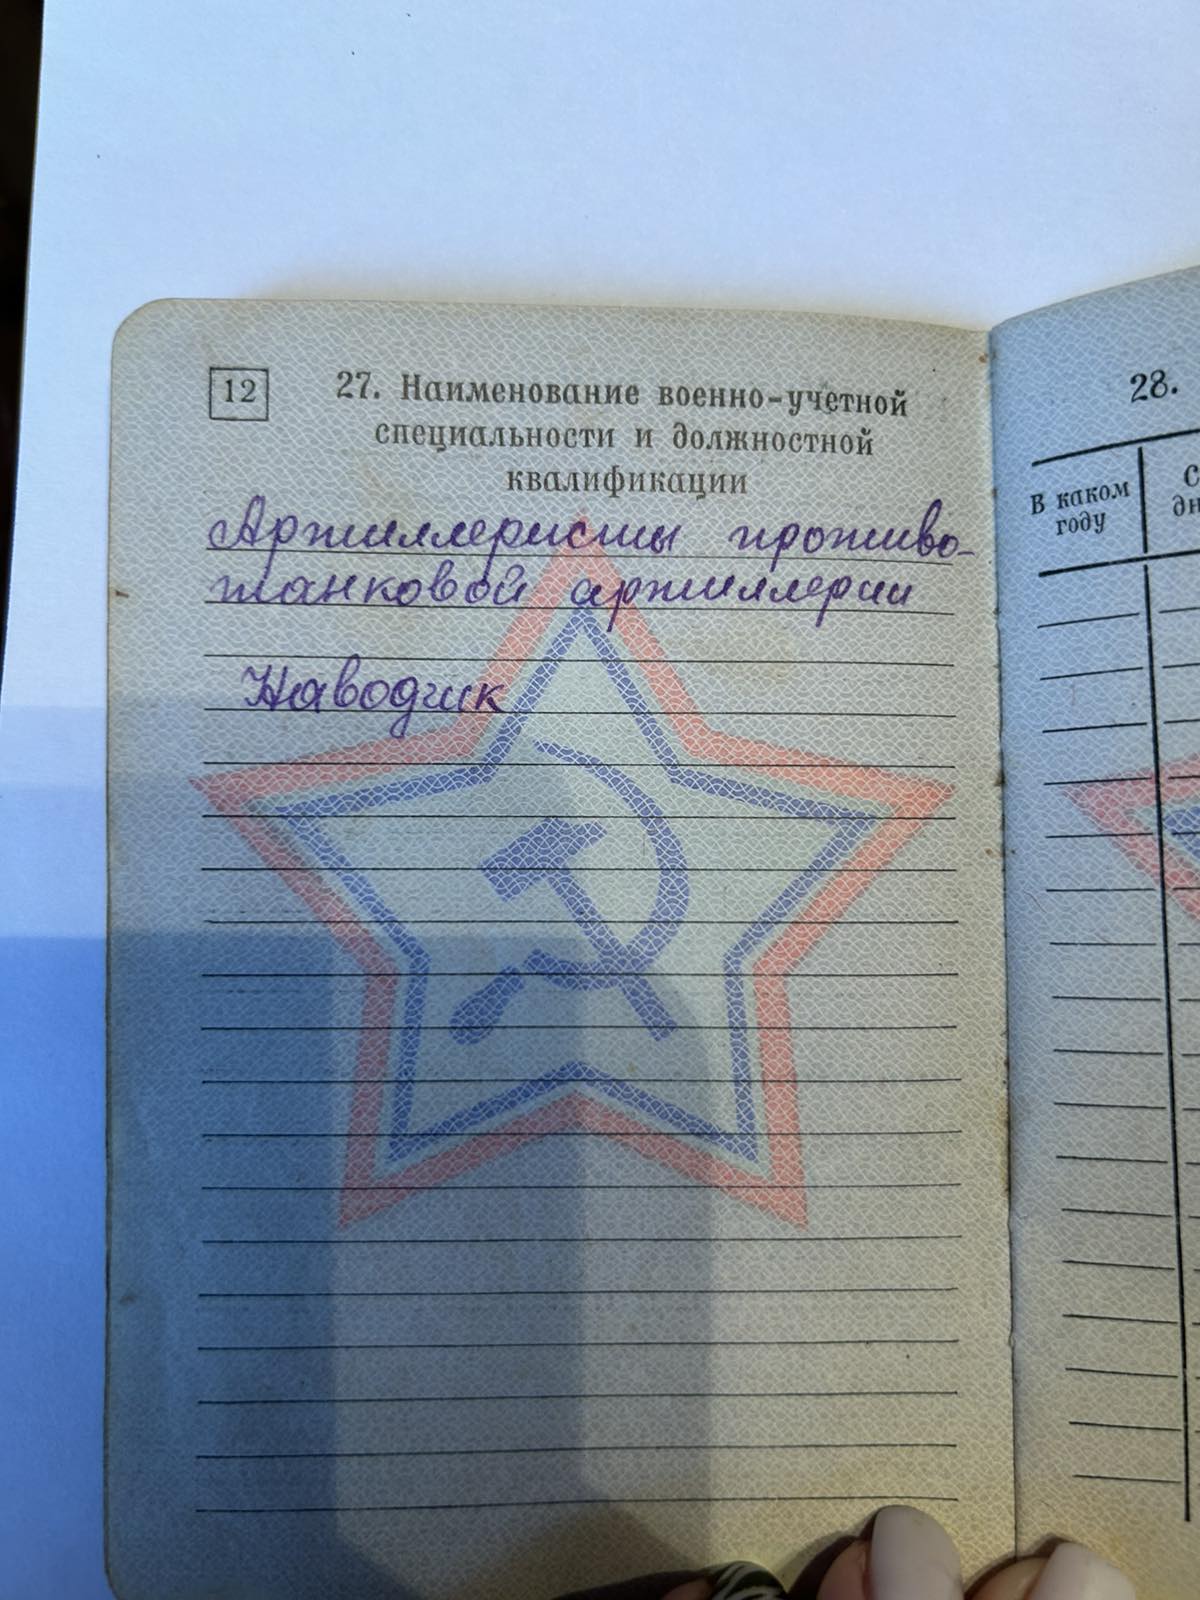 12
27. Наименование военно-учетной
специальности и должностной
квалификации
Артиллеристы противо-
танковой артиллерии
Наводчик
28.
В каком
году